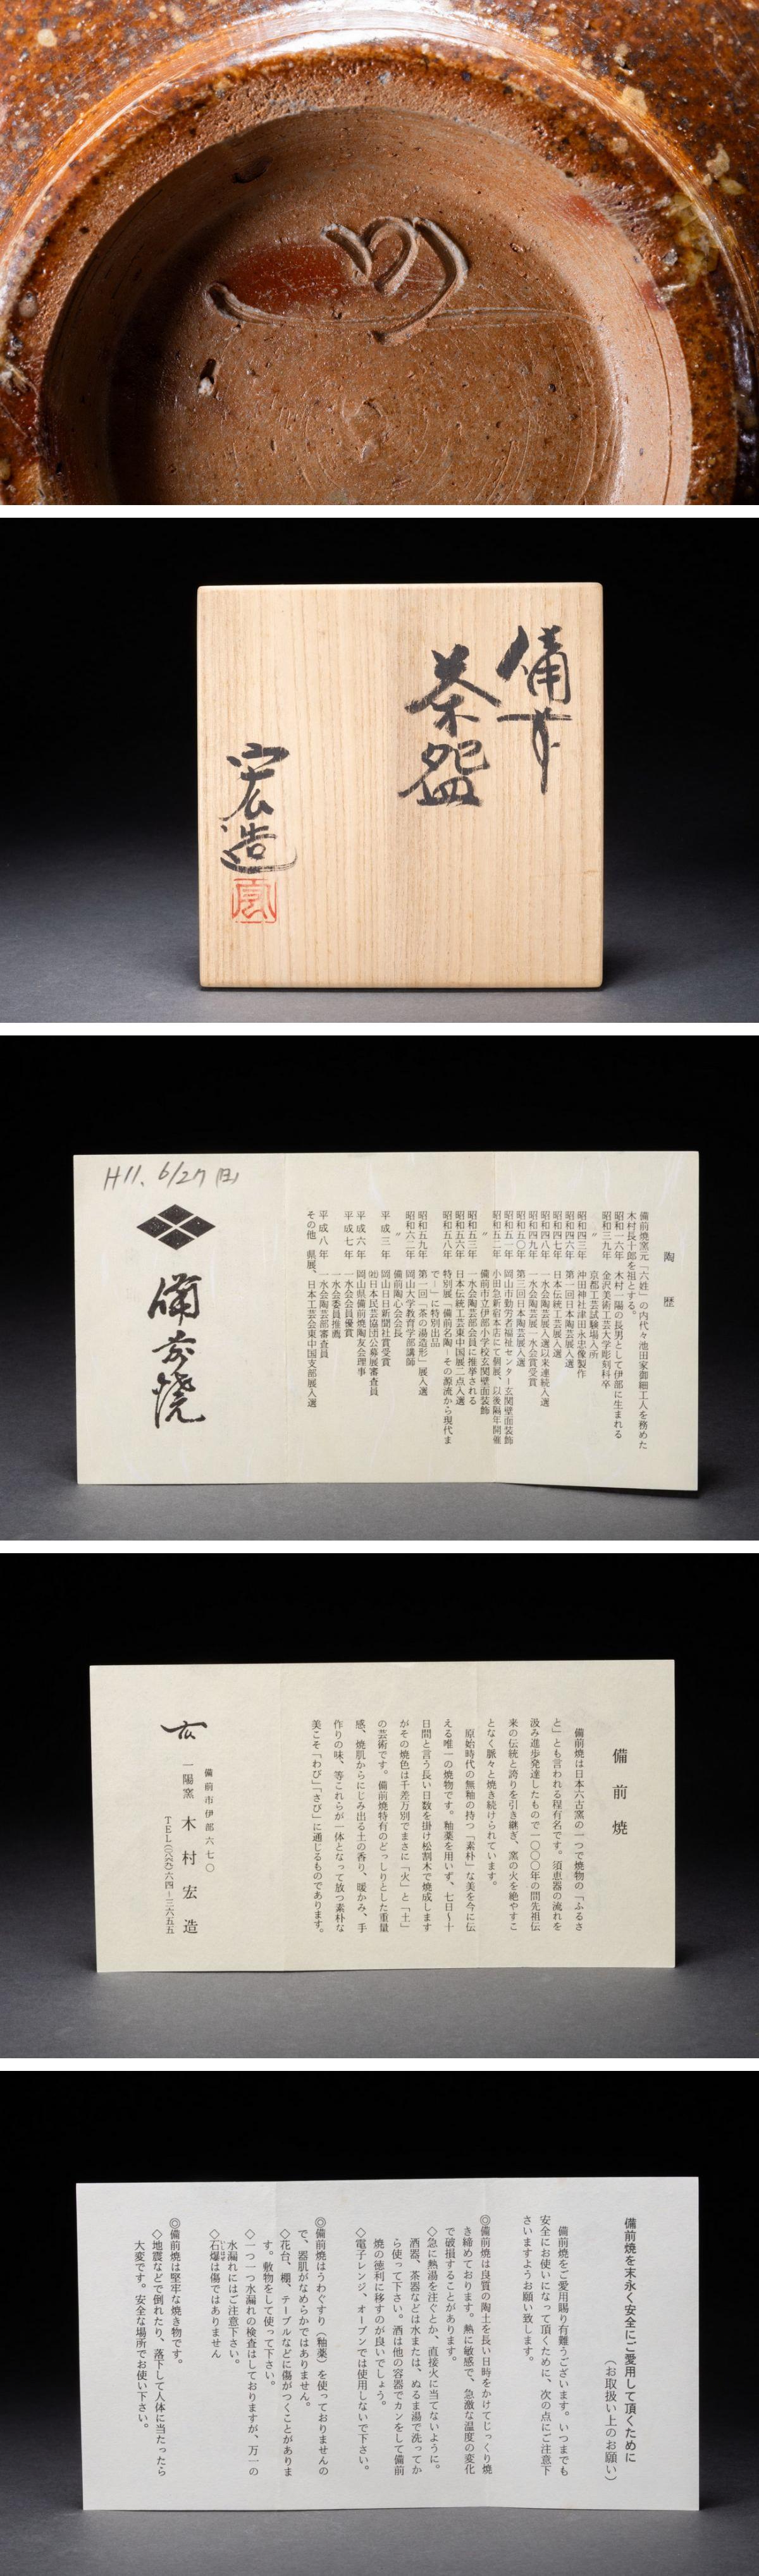 備前
茶盌
宏造
陶歴
備前焼窯元「六姓」の内代々池田家御細工人を務めた
木村長十郎を祖とする。
昭和一六年 木村一陽の長男として伊部に生まれる
昭和三九年 金沢美術工芸大学彫刻科卒
〃 京都工芸試験場入所
昭和四三年 沖田神社津田永忠像製作
昭和四六年 第一回日本陶芸展入選
昭和四七年 日本伝統工芸展入選
昭和四八年 一水会陶芸展入選以来連続入選
昭和四九年 一水会陶芸展一水会賞受賞
昭和五〇年 第三回日本陶芸展入選
昭和五一年 岡山市勤労者福祉センター玄関壁面装飾
昭和五二年 小田急新宿本店にて個展、以後隔年開催
〃 備前市立伊部小学校玄関壁面装飾
昭和五三年 一水会陶芸部会員に推挙される
昭和五六年 日本伝統工芸東中国展二点入選
昭和五八年 特別展「備前名陶ーその源流から現代ま
で」に特別出品
昭和五九年 第一回「茶の湯造形」展入選
昭和六二年 岡山大学教育学部講師
〃 備前陶心会会長
平成三年 岡山日日新聞社賞受賞
㈳日本民芸協団公募展審査員
平成六年 岡山県備前焼陶友会理事
平成七年 一水会会員優賞
一水会委員推薦
平成八年 一水会陶芸部審査員
その他 県展、日本工芸会東中国支部展入選
H11. 6/27 (日)
備前焼
備前焼
備前焼は日本六古窯の一つで焼物の「ふるさ
と」とも言われる程有名です。須恵器の流れを
汲み進歩発達したもので一〇〇〇年の間先祖伝
来の伝統と誇りを引き継ぎ、窯の火を絶やすこ
となく脈々と焼き続けられています。
原始時代の無釉の持つ「素朴」な美を今に伝
える唯一の焼物です。釉薬を用いず、七日〜十
日間と言う長い日数を掛け松割木で焼成します
がその焼色は千差万別でまさに「火」と「土」
の芸術です。備前焼特有のどっしりとした重量
感、焼肌からにじみ出る土の香り、暖かみ、手
作りの味、等これらが一体となって放つ素朴な
美こそ「わび」「さび」に通じるものであります。
備前市伊部六七〇
一陽窯 木村宏造
備前焼を末永く安全にご愛用して頂くために
(お取扱い上のお願い)
備前焼をご愛用賜り有難うございます。いつまでも
安全にお使いになって頂くために、次の点にご注意下
さいますようお願い致します。
◎備前焼は良質の陶土を長い日時をかけてじっくり焼
き締めております。熱に敏感で、急激な温度の変化
で破損することがあります。
◇急に熱湯を注ぐとか、直接火に当てないように。
酒器、茶器などは水または、ぬるま湯で洗ってか
ら使って下さい。酒は他の容器でカンをして備前
焼の徳利に移すのが良いでしょう。
◇電子レンジ、オーブンでは使用しないで下さい。
◎備前焼はうわぐすり(釉薬)を使っておりませんの
で、器肌がなめらかではありません。
◇花台、棚、テーブルなどに傷がつくことがありま
す。敷物をして使って下さい。
◇一つ一つ水漏れの検査はしておりますが、万一の
水漏れにはご注意下さい。
◇石爆は傷ではありません
◎備前焼は堅牢な焼き物です。
◇地震などで倒れたり、落下して人体に当たったら
大変です。安全な場所でお使い下さい。